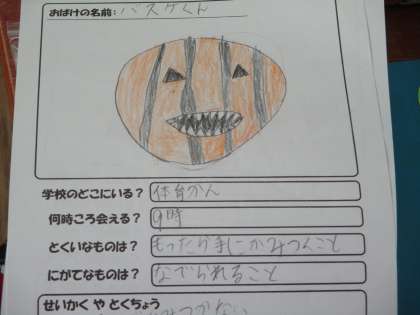 おばけの名前: バスケくん
学校のどこにいる? 体育かん
何時ころ会える? 9時
とくいなものは? もったら手にかみつくこと
にがてなものは? なでられること
せいかく や とくちょう